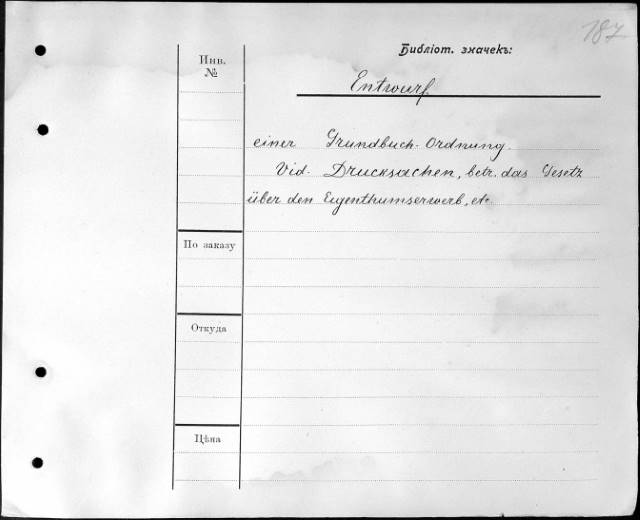 187
Библіот. значекъ:
Инв.
№
Entwurf
einer Grundbuch-Ordnung.
Vid. Drucksachen, betr. das Gesetz
über den Eigenthumserwerb, etc.
По заказу
Откуда
Цѣна